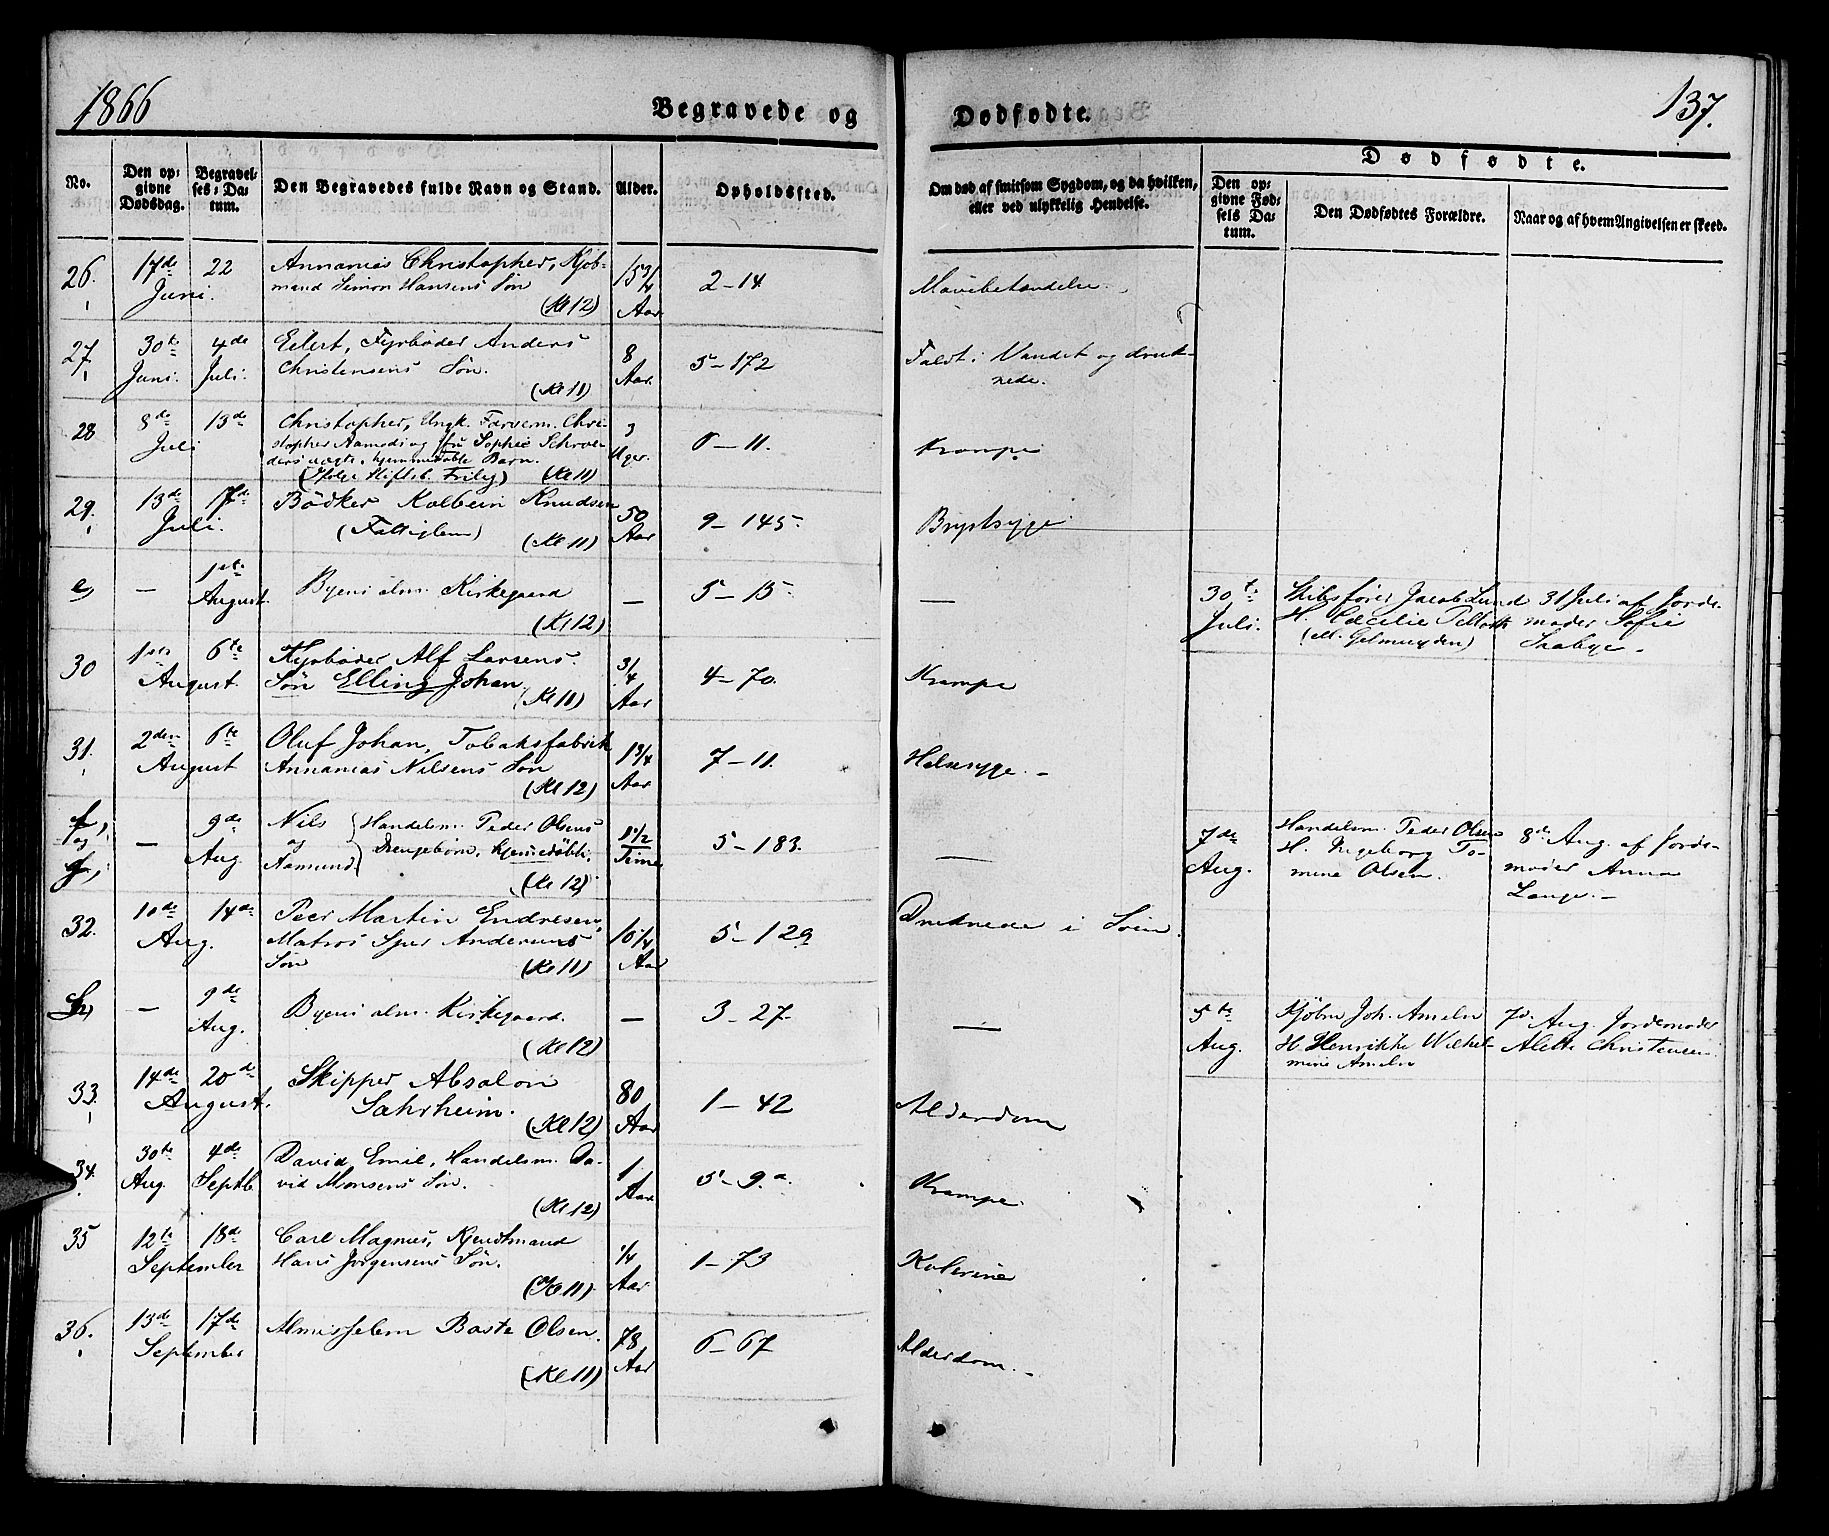 1866
Begravede og
Dødfødte.
137.
No.
Den opgivne Dødsdag.
Begravelses-Datum.
Den Begravedes fulde Navn og Stand.
Alder.
Opholdssted.
Om død af smitsom Sygdom, og da hvilken, eller ved ulykkelig Hendelse.
Dødfødte.
Den opgivne Fødsels Datum.
Den Dødfødtes Forældre.
Naar og af hvem Angivelsen er skeed.
26. 17de 22 Annanias Christopher, Kjøb- 15 3/4 2-14 Mavebetændelse.
Juni. mand Simon Hansens Søn
(Kl 12) Aar
27. 30te 4de Eilert, Fyrbøder Anders 8 5-172 Faldt i Vandet og druk-
Juni. Juli. Christensens Søn. Aar. nede.
(Kl 11)
28 8de 13de Christopher, Ungk. Farvem. Chri- 3 0-11. Krampe
Juli stopher Aamodt og Sophie Schroe-
ders uægte, hjemmedøbte Barn. Uger.
(Kl 11)
29. 13de 17de Bödker Kolbein Knudsen 50 9-145. Brystsyge
Juli. (Fattiglem) (Kl 11) Aar
e, — 1ste Byens alm. Kirkegaard — 5-15. — 30te Skibsfører Jacob Lund 31 Juli af Jorde-
August. Juli. H. Cecilie moder Sofie
(Kl 12)
30 1ste 6te Fyrbøder Alf Larsens 3/4 4-70. Krampe
August. Søn Elling Johan. (Kl 11) Aar
31. 2den 6te Oluf Johan, Tobaksfabrik 1 3/4 7-11. Halssyge.-
August Annanias Nilsens Søn Aar
(Kl 12)
f, 9de Nils Handelsm. Peder Olsens 1 1/2 5-183. — 7de Handelsm. Peder Olsen 8de Aug. af Jorde-
og — Aug og Drengebørn, hjemmedøbte. Time Aug. H. Ingeborg To- moder Anna
g, Aamund (Kl 12) mine Olsen. Lange.-
32. 10de 14de Peer Martin Endresen, 10 1/4 5-129 Druknede i Søen.
Aug. Matros Sjur Andersens Aar
Søn (Kl 11)
h, — 9de Byens alm. Kirkegaard. — 3-27. — 5te Kjøbm Joh. Ameln 7de Aug. Jordemoder
Aug. Aug. H. Henrikke Wilhel- Alette Christensen
(Kl 12) mine Ameln
33. 14de 20de Skipper Absalon 80 1-42 Alderdom
August. Sahrheim. (Kl 12) Aar
34. 30te 4de David Emil, Handelsm. Da- 1 5-9.a. Krampe.
Aug. Septb. vid Monsens Søn. Aar
(Kl 12)
35 12te 18de Carl Magnus, Kjendtmand 1/4 1-73 Kolerine
September Hans Jørgensens Søn. Aar
(Kl 11)
36. 13de 17de Almisselem Baste Olsen. 78 6-67 Alderdom.-
September (Kl 11) Aar